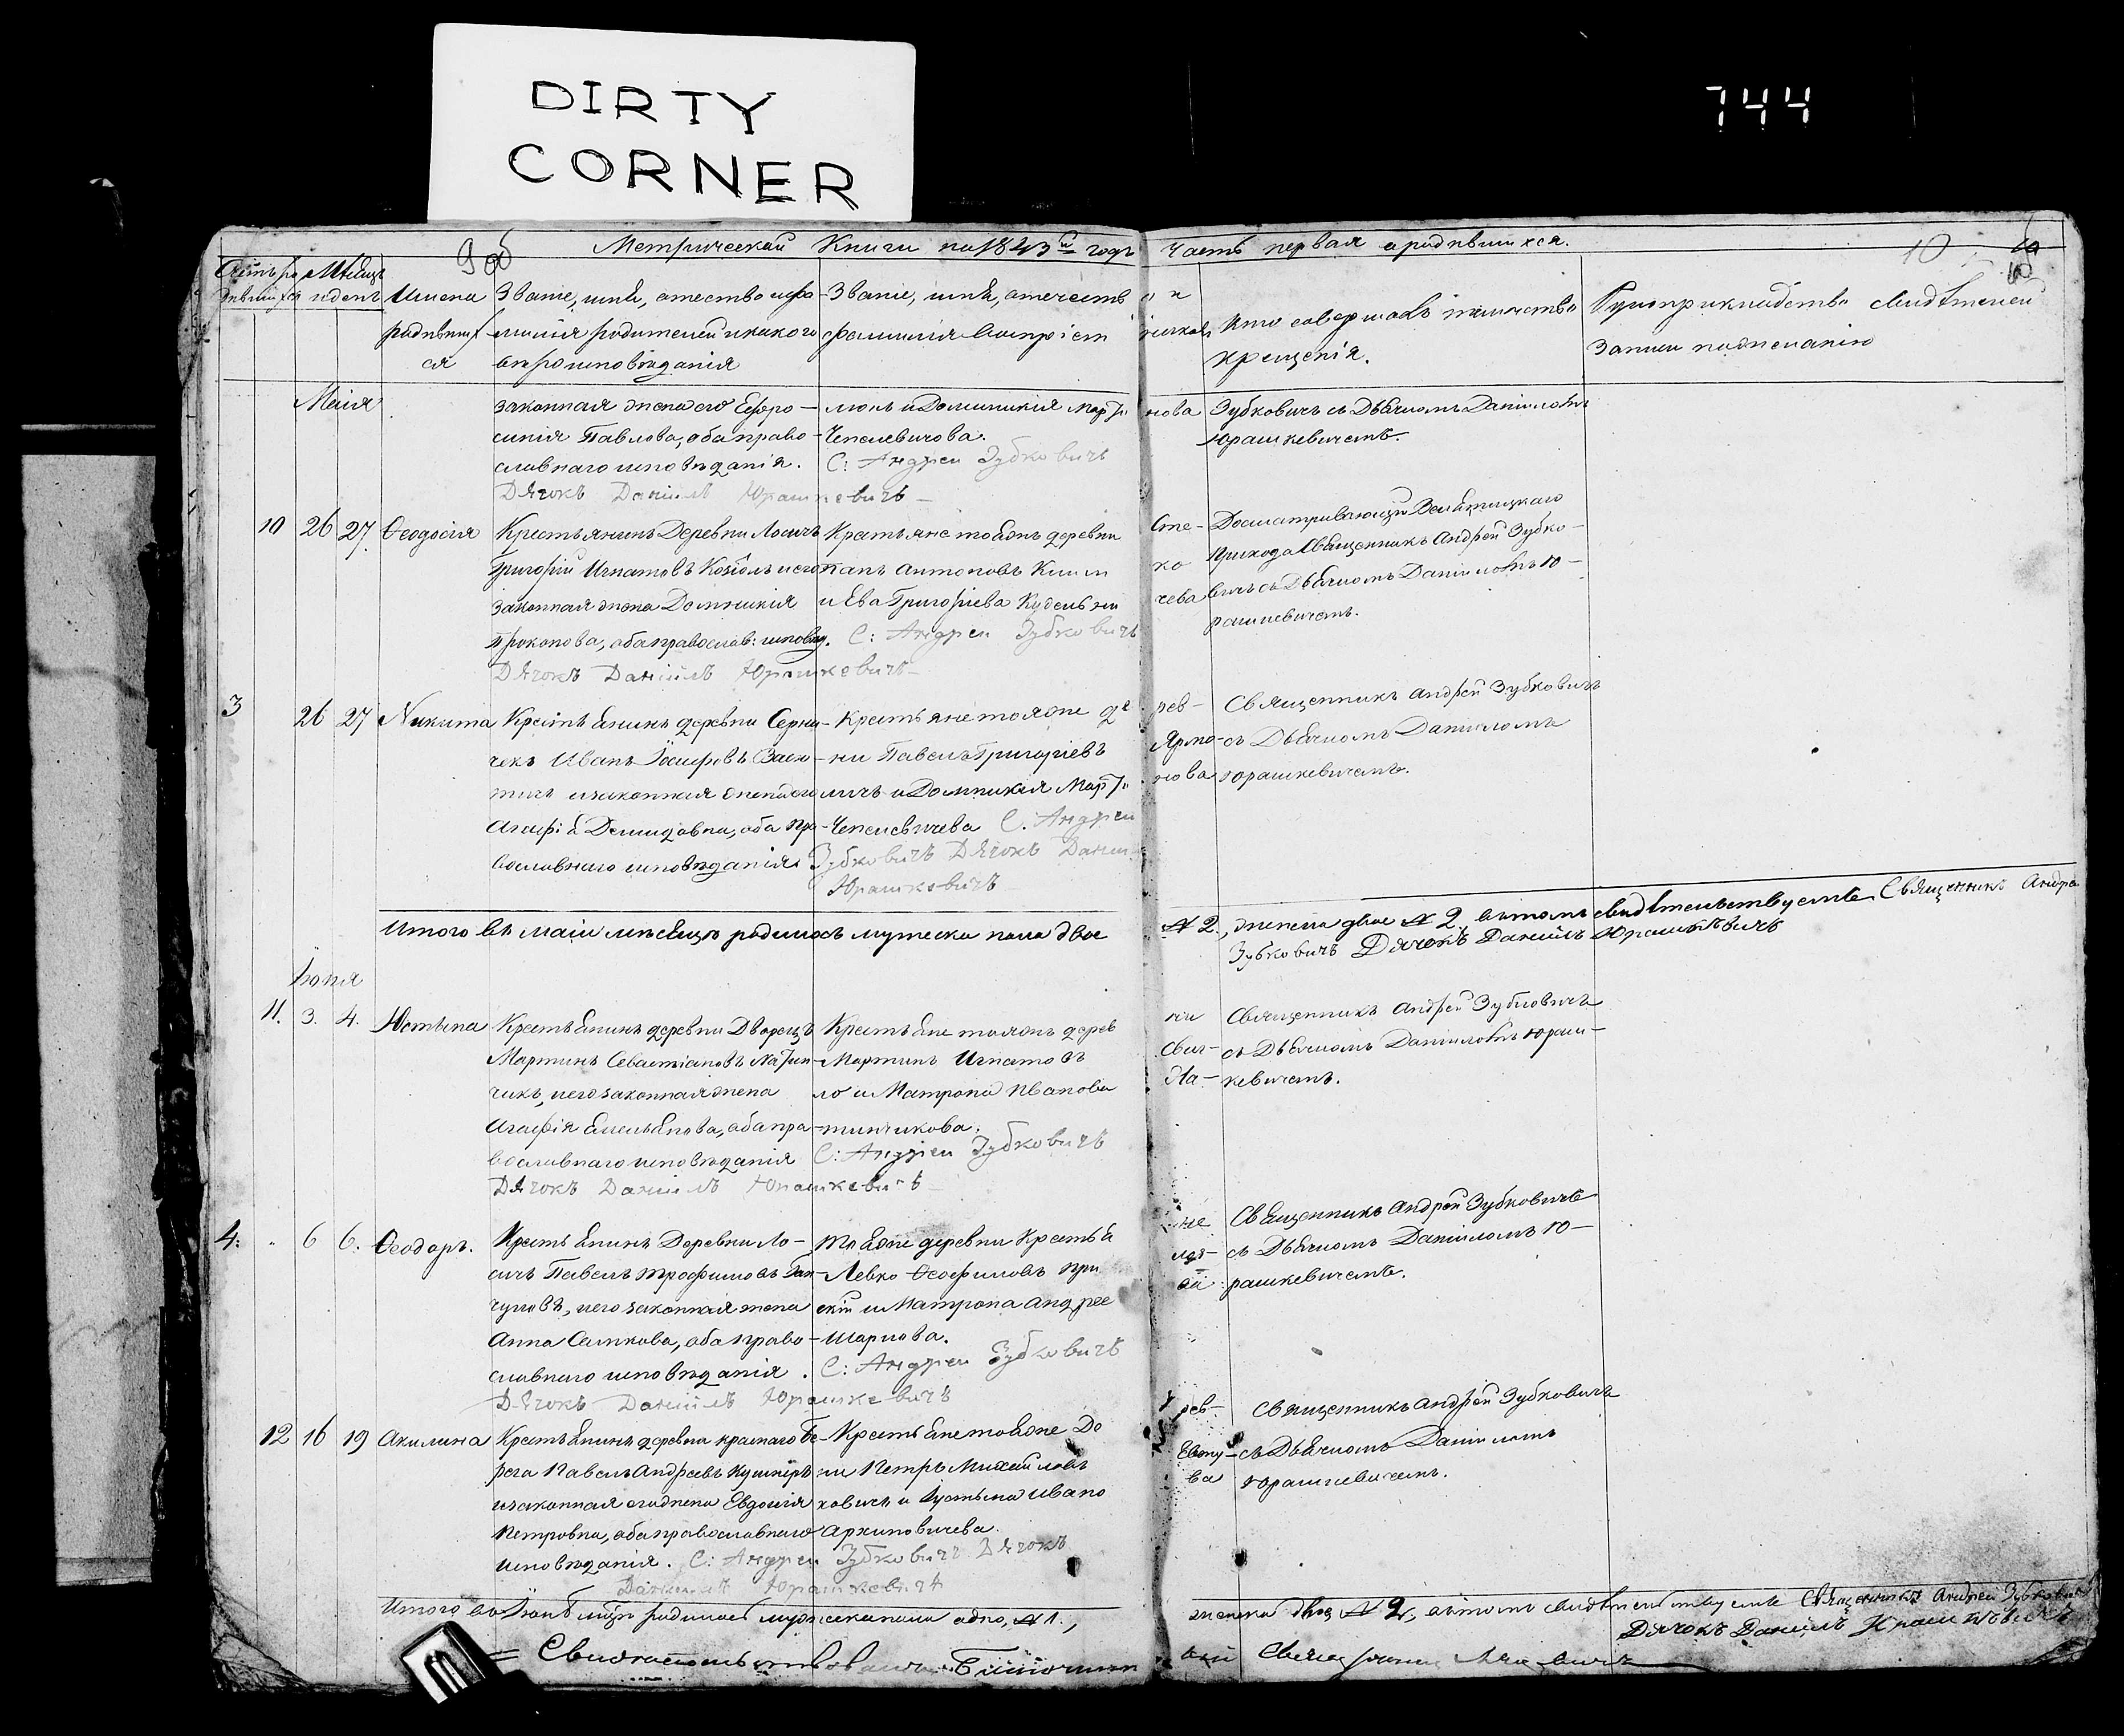 DIRTY
CORNER
744
9 об
Метрической Книги на 1843 й годъ
Часть первая о родившихся.
10
Имена
родивших
ся
Званіе, имя, отество и фа-
милія родителей и какого
вѣроисповѣданія
Званіе, имя, отечеств
фамилія воспріем
о и
никовъ
Кто совершалъ таинство
крещенія.
Рукоприкладство свидѣтелей
записи по желанію
Маія
законная жена его Ефро-
синія Павлова, оба право-
славнаго исповѣданія.
Дячокъ Даніилъ Юрашкевичъ
люкъ и Доминикія Март
Чепелевичова.
С: Андрей Зубковичъ
нова
Зубковичъ съ Дьячкомъ Даніиломъ
Юрашкевичемъ.
10 26 27. Ѳеодосія
Крестьянинъ Деревни Лосичъ
Григорій Игнатовъ Козіолъ и его
законная жена Домникія
Прокопова, оба православ: исповѣд.
Дячокъ Даніилъ Юрашкевичъ
Крестьяне тоежъ деревни
панъ Антоновъ Ким
и Ева Григоріева Кудель
С: Андрей Зубковичъ
Сте-
ко
чева
Досматривающій
прихода Священникъ Андрей Зубко-
вичъ съ Дьячкомъ Даніиломъ Ю-
рашкевичемъ.
3 26 27 Никита
Крестьянинъ деревни Серни-
чекъ Иванъ Іосифовъ
и законная жена его
Агафія Демидовна, оба пра-
вославнаго исповѣданія
Крестьяне тояже де
ни Павелъ Григоріевъ
личъ и Домникія Март
Чепелевичева С. Андрей
Зубковичъ Дячокъ Даніи
Юрашкевичъ
рев-
Ярмо-
нова
Священникъ Андрей Зубковичъ
съ Дьячкомъ Даніиломъ
Юрашкевичемъ.
Итого въ маіи мѣсяцѣ родилось мужеска пола двое
№ 2, женска двое № 2 въ томъ свидѣтельствуемъ Священникъ Андре
Зубковичъ Дячокъ Даніилъ Юрашкевичъ
Іюня
11. 3. 4. Юстына
Крестьянинъ деревни Дворецъ
Мартинъ Севастіановъ
чикъ, и его законная жена
Агафія Емельянова, оба пра-
вославнаго исповѣданія
Дячокъ Даніилъ Юрашкевичъ
Крестьяне тояжъ дерев
Мартинъ Игнатовъ
ло и Матрона Иванова
тинчикова.
С: Андрей Зубковичъ
ни
Свич-
Ла-
Священникъ Андрей Зубковичъ
съ Дьячкомъ Даніиломъ Юраш-
кевичемъ.
4. 6 6. Ѳеодоръ.
Крестьянинъ Деревни Ло-
сичъ Павелъ Трофимовъ
и его законная жена
Анна Самкова, оба право-
славнаго исповѣданія.
Дячокъ Даніилъ Юрашкевичъ
тояже деревни Крестья
Левко Ѳеофиловъ
скій и Матрона Андрее
Шарпова.
С: Андрей Зубковичъ
не
Священникъ Андрей Зубковичъ
съ Дьячкомъ Даніиломъ Ю-
рашкевичемъ.
12 16 19 Акилина
Крестьянинъ деревни краснаго Бе-
рега Павелъ Андреевъ Кушнеръ
и законная его жена Евдокія
Петровна, оба православнаго
исповѣданія. С: Андрей Зубковичъ Дячокъ
Даніилъ Юрашкевичъ
Крестьяне тояже Де
ни Петръ Михайловъ
ховичъ и Іустына Ивано
Архиповичева.
рев-
ва
Священникъ Андрей Зубковичъ
съ Дьячкомъ Даніиломъ
Юрашкевичемъ.
Итого во Іюнѣ мцѣ родилось мужеска пола одно, № 1.,
женска двое № 2, въ томъ свидѣтельствуемъ Священникъ Андрей Зубкович
Дячокъ Даніилъ Юрашкевичъ